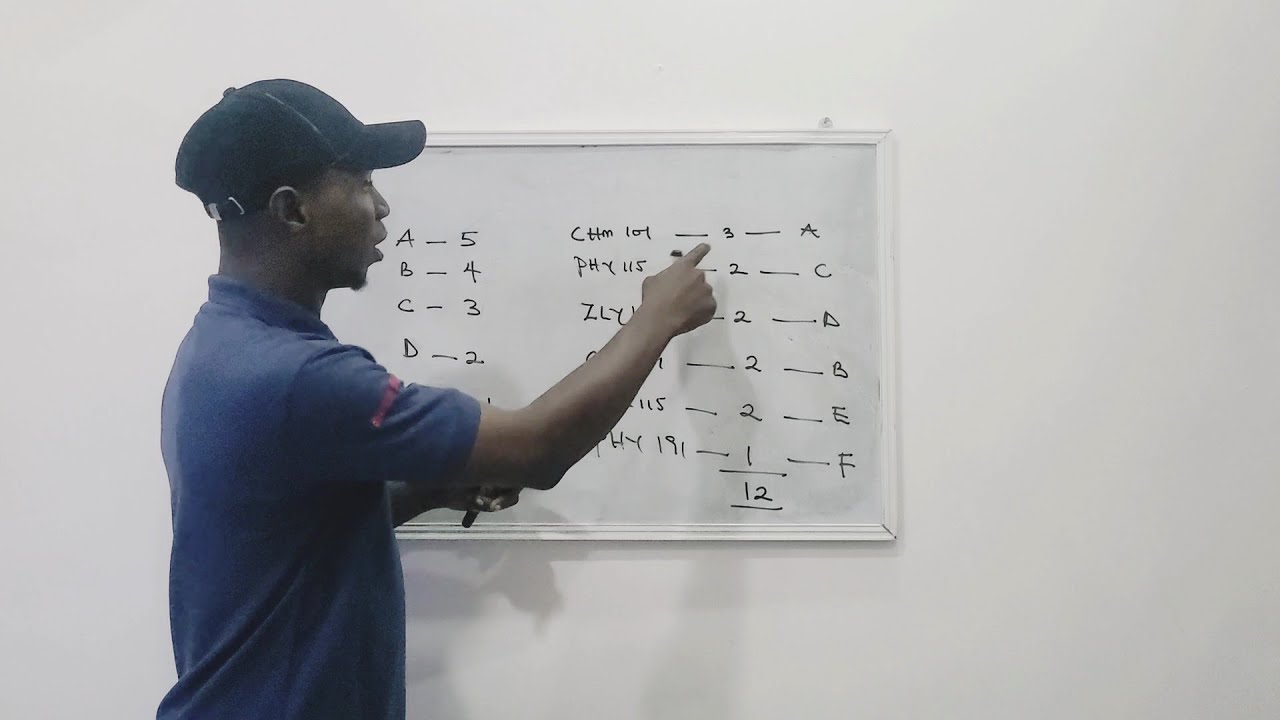 A — 5
B — 4
C — 3
D — 2
1
CHM 101 — 3 — A
PHY 115 — 2 — C
ZLY — 2 — D
1 — 2 — B
115 — 2 — E
PHY 191 — 1 — F
12